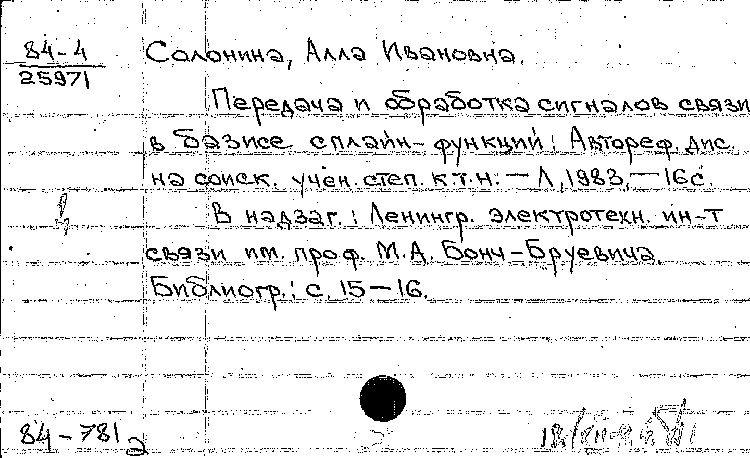 84-4
25971
Солонина, Алла Ивановна.
Передача и обработка сигналов связи
в базисе сплайн-функций: Автореф. дис.
на соиск. учен. степ. к.т.н.: — Л, 1983, — 16с.
В надзаг.: Ленингр. электротехн. ин-т
связи им. проф. М.А. Бонч-Бруевича.
Библиогр.: с. 15-16.
84-781